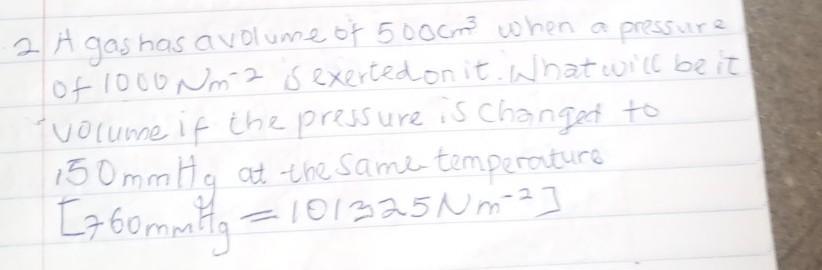 2 A gas has a volume of 500cm³ when a pressure
of 1000 Nm⁻² is exerted on it. What will be it
volume if the pressure is changed to
150mmHg at the same temperature
[760mmHg = 101325Nm⁻²]